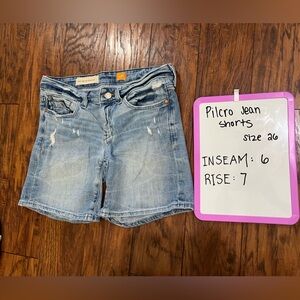 Pilcro Jean
shorts
size 26
INSEAM: 6
RISE: 7